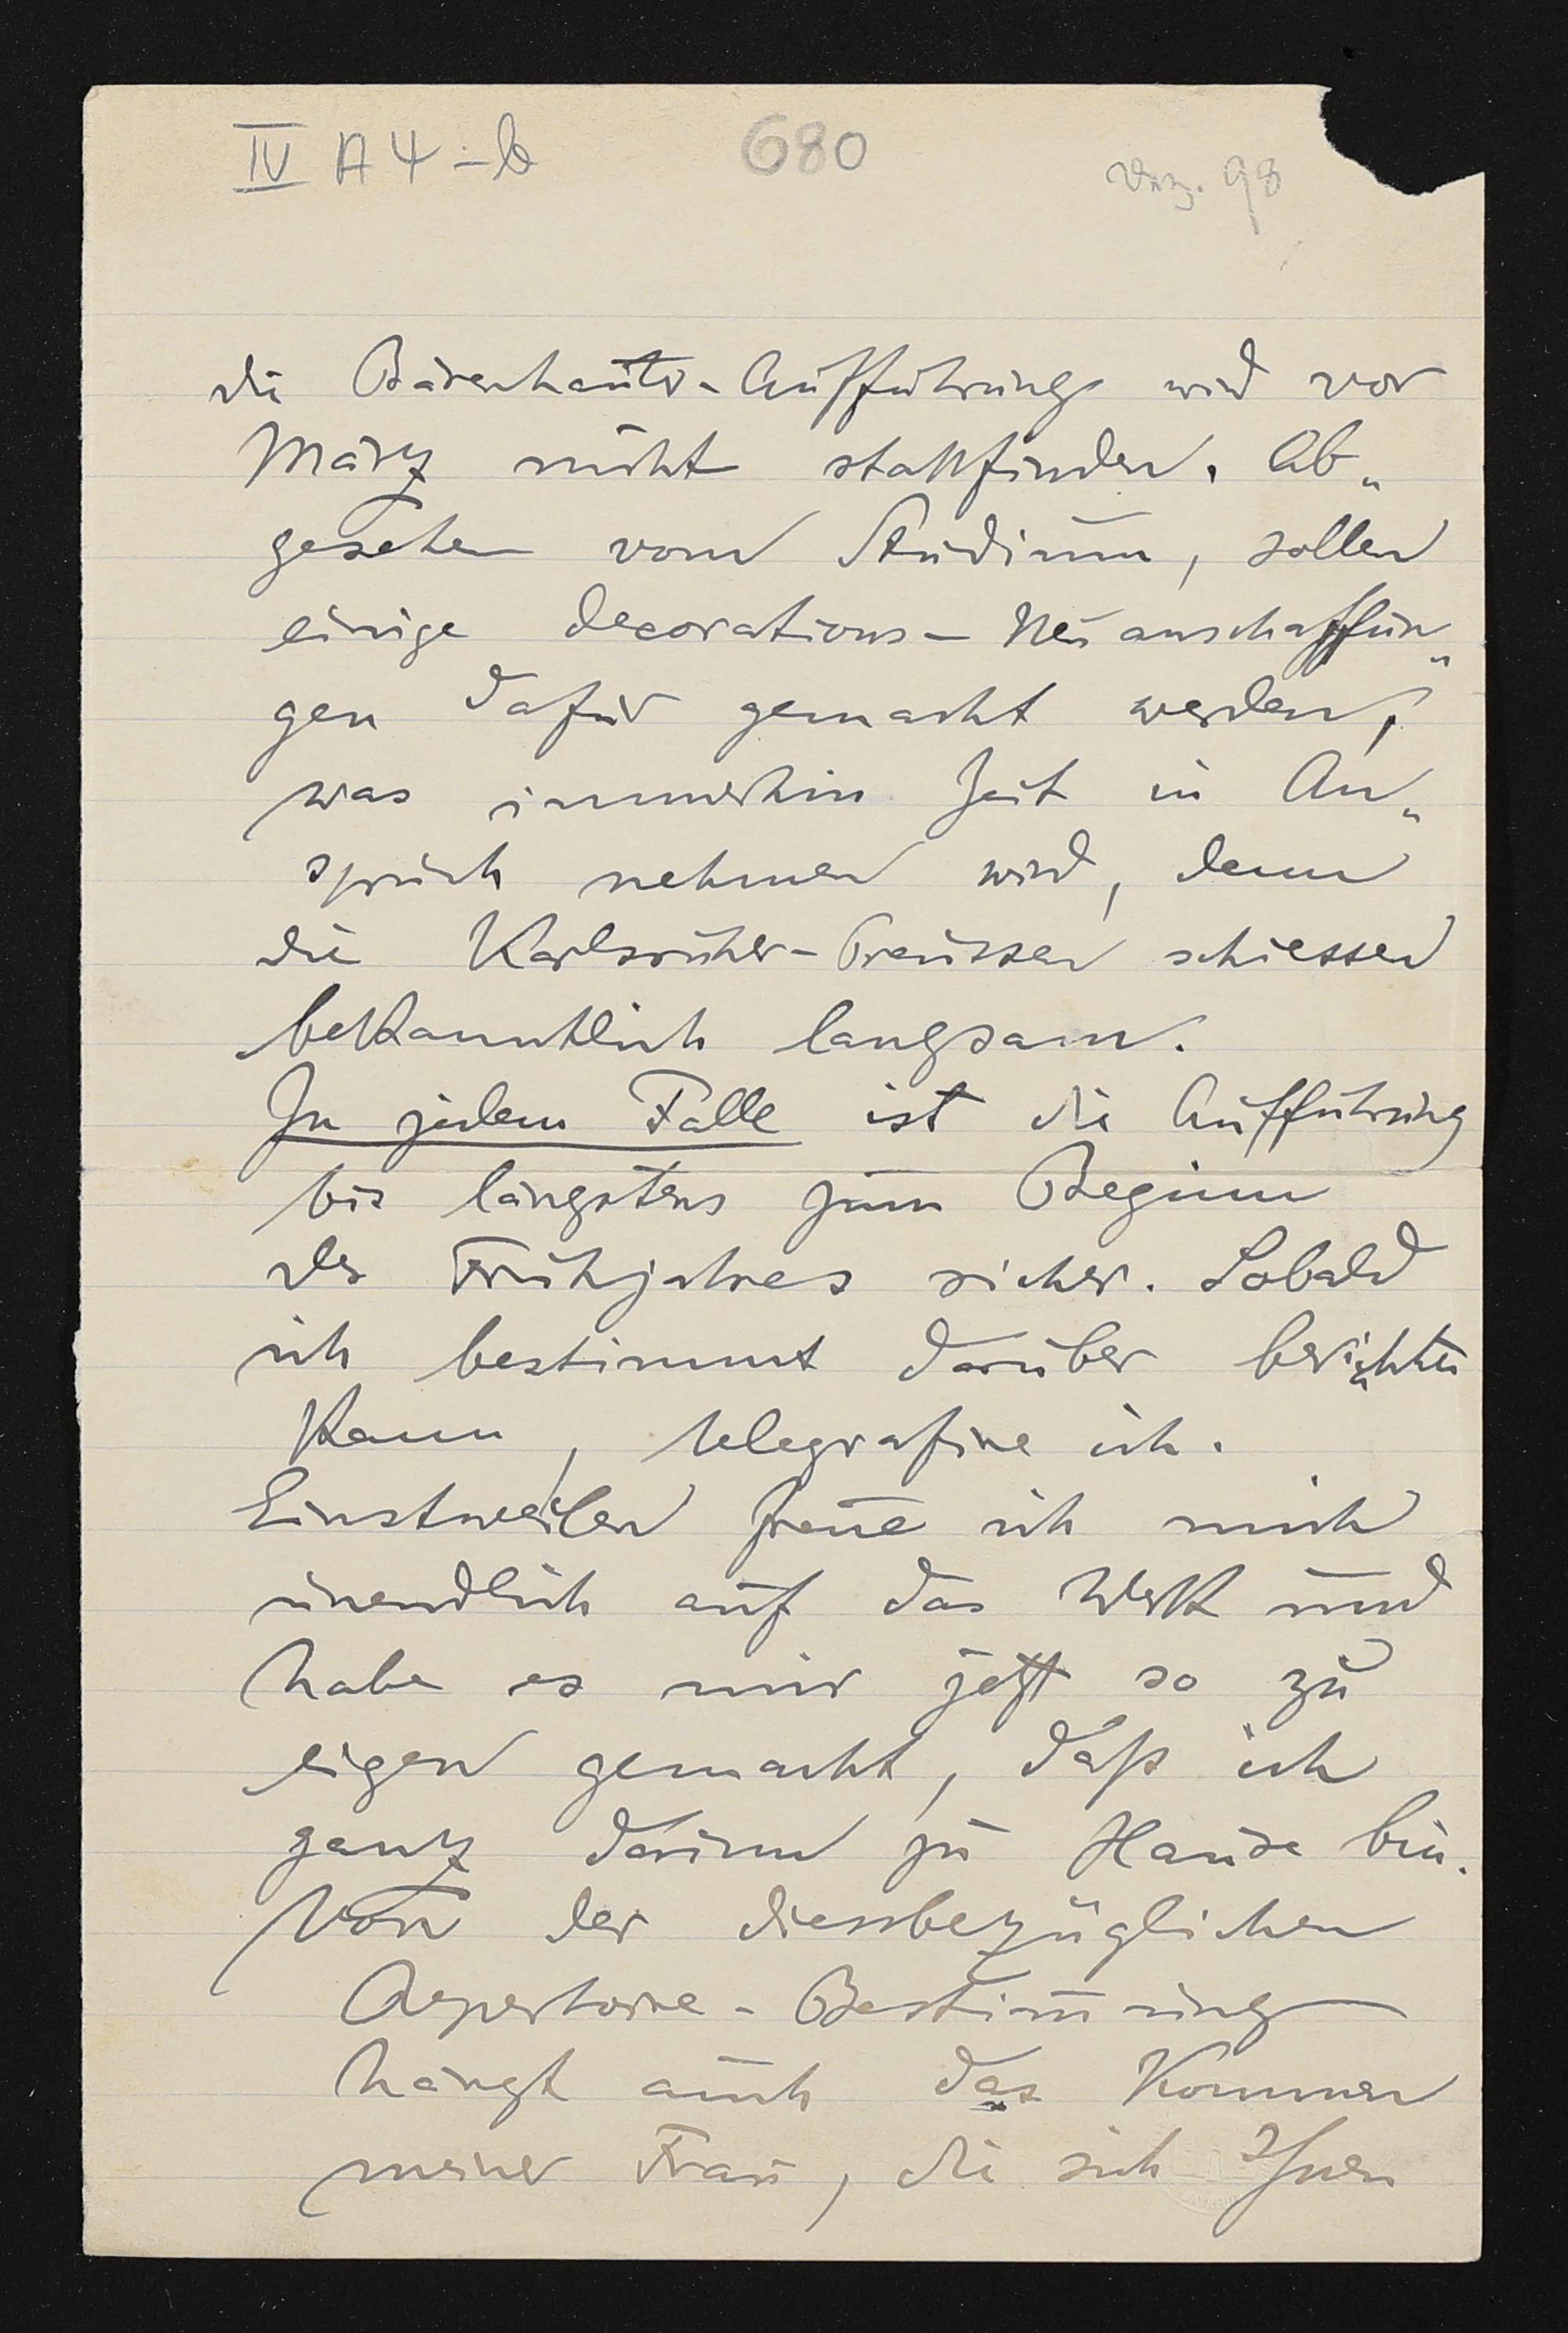 IV A 4 - b 680 Dez. 98
die Bärenhäuter-Aufführung wird vor
März nicht stattfinden. Ab„
gesehen vom Studium, sollen
einige Decorations-Neuanschaffun„
gen dafür gemacht werden,
was immerhin Zeit in An„
spruch nehmen wird, denn
die Karlsruher-Preussen schiessen
bekanntlich langsam.
In jedem Falle ist die Aufführung
bis längstens zum Beginn
des Frühjahres sicher. Sobald
ich bestimmt darüber berichten
kann, telegrafire ich.
Einstweilen freue ich mich
unendlich auf das Werk und
habe es mir jetzt so zu
eigen gemacht, daß ich
ganz darinn zu Hause bin.
Von der diessbezüglichen
Repertoire-Bestim̄ung
hängt auch das Kommen
meiner Frau, die sich Ihnen